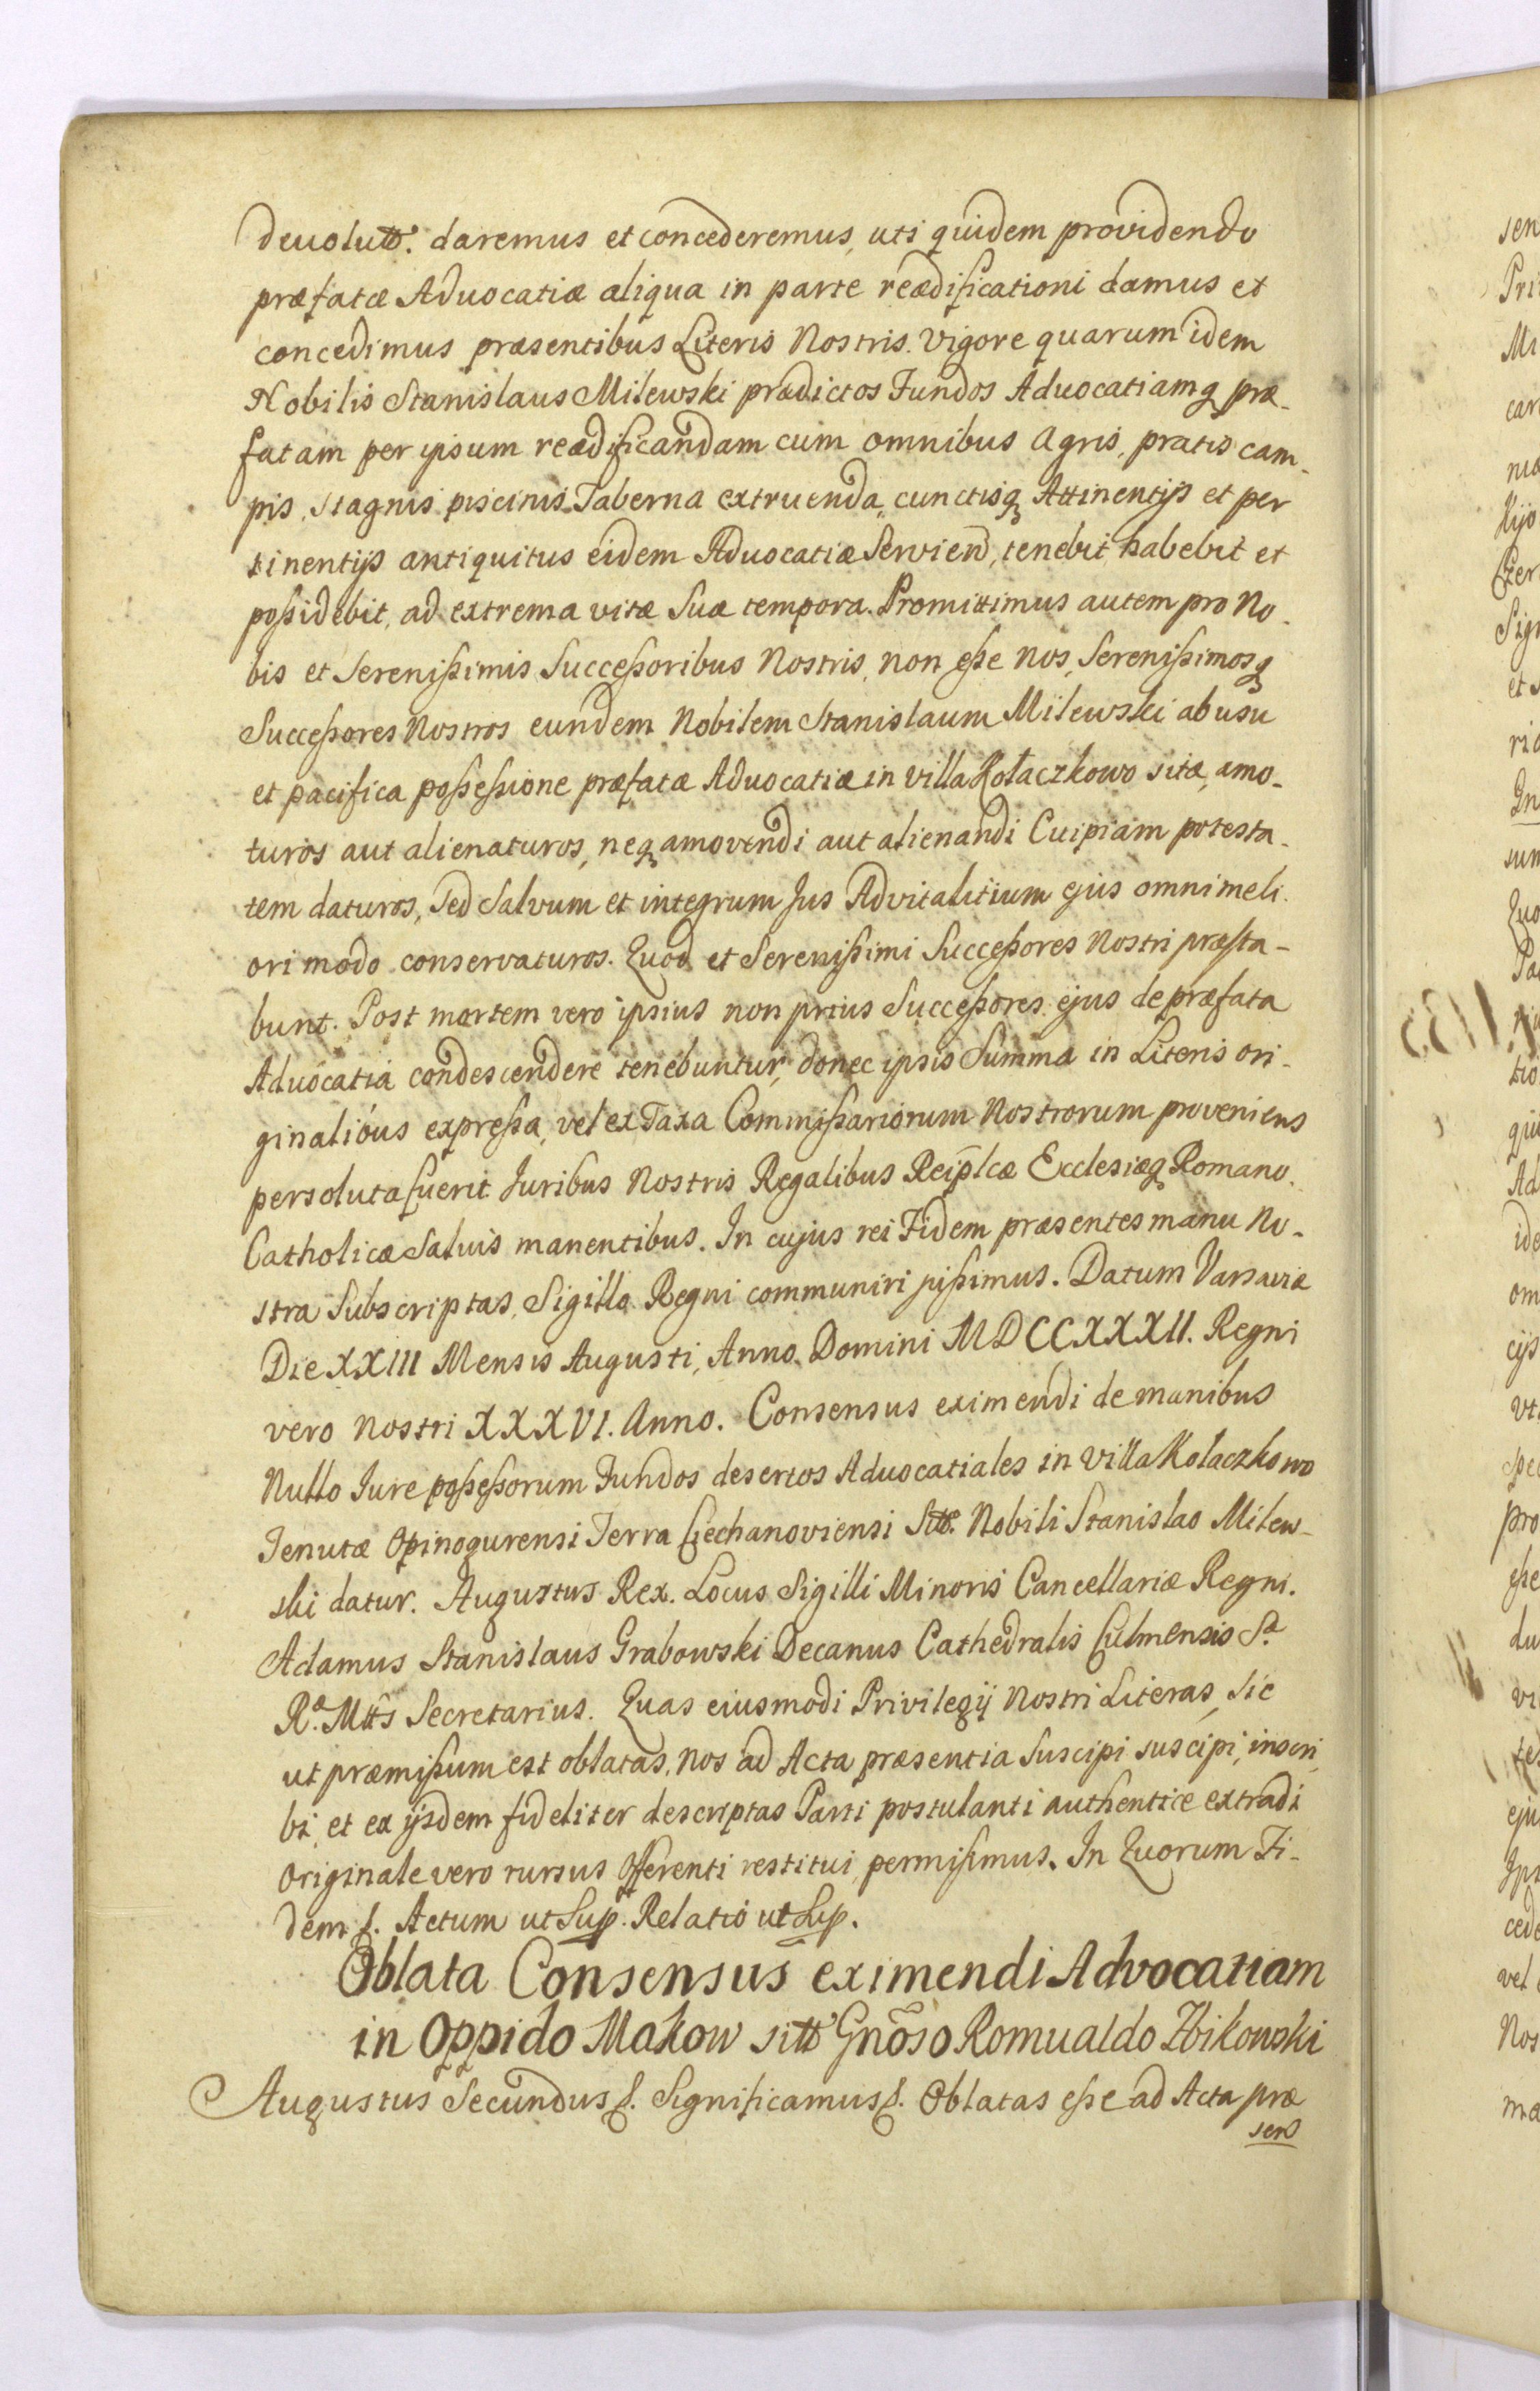 devolutt. daremus et concederemus, uti quidem providendo
præfatæ Advocatiæ aliqua in parte reædificationi damus et
concedimus præsentibus Literis Nostris. Vigore quarum idem
Nobilis Stanislaus Milewski prædictos Fundos Advocatiamq præ-
fatam per ipsum reædificandam cum omnibus Agris, pratis cam-
pis, stagnis piscinis Taberna extruenda, cunctisq Attinentijs et per
tinentijs antiquitus eidem Advocatiæ Serviend, tenebit habebit et
possidebit, ad extrema vitæ Suæ tempora. Promittimus autem pro No-
bis et Serenissimis Successoribus Nostris, non esse Nos, Serenissimosq
Successores Nostros eundem Nobilem Stanislaum Milewski ab usu
et pacifica possessione præfatæ Advocatiæ in villa Kołaczkowo sitæ, amo-
turos aut alienaturos, neq amovendi aut alienandi Cuipiam potesta-
tem daturos, Sed Salvum et integrum Jus Advitalitium ejus omni meli-
ori modo conservaturos. Quod et Serenissimi Successores Nostri præsta-
bunt. Post mortem vero ipsius non prius Successores ejus de præfata
Advocatia condescendere tenebuntur, donec ipsis Summa in Literis ori-
ginalibus expressa, vel ex Taxa Commissariorum Nostrorum proveniens
persoluta fuerit Juribus Nostris Regalibus Reiplcæ Ecclesiæq Romano-
Catholicæ Salvis manentibus. In cujus rei Fidem præsentes manu No-
stra Subscriptas, Sigillo Regni communiri jussimus. Datum Varsaviæ
Die XXIII Mensis Augusti, Anno Domini MDCCXXXII. Regni
vero Nostri XXXVI. Anno. Consensus eximendi de manibus
Nullo Jure possessorum Fundos desertos Advocatiales in villa Kołaczkowo
Tenutæ Opinogurensi Terra Ciechanoviensi Sitt. Nobili Stanislao Milew-
ski datur. Augustus Rex. Locus Sigilli Minoris Cancellariæ Regni.
Adamus Stanislaus Grabowski Decanus Cathedralis Culmensis Sæ
Ræ. Mttis Secretarius. Quas eiusmodi Privilegij Nostri Literas, sic
ut præmissum est oblatas, Nos ad Acta præsentia Suscipi suscipi, inscri
bi, et ex ijsdem fideliter descriptas Parti postulanti authentice extradi
Originale vero rursus Offerenti restitui, permisimus. In Quorum Fi-
dem f. Actum ut Sup. Relatio ut Sup.
Oblata Consensus eximendi Advocatiam
in Oppido Makow sitt Gnoso Romualdo Zbikowski
Augustus Secundus f. Significamus f. Oblatas esse ad Acta præ
sens